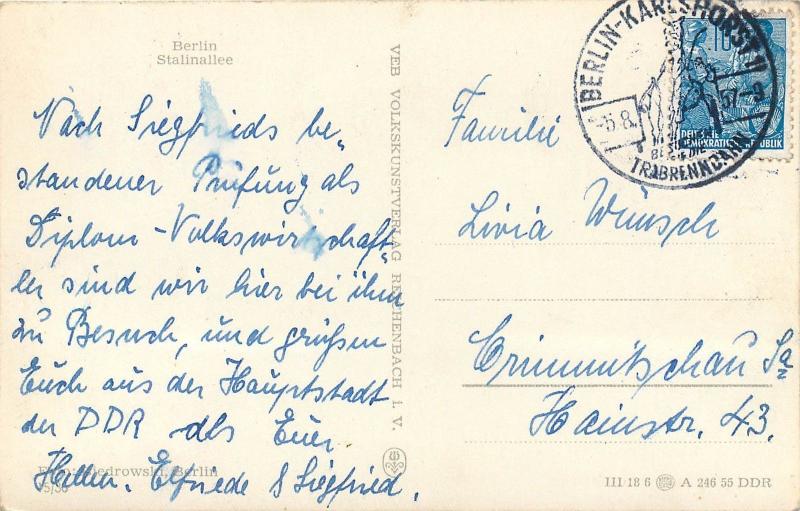 Berlin
Stalinallee
Nach Siegfrieds be-
standener Prüfung als
Diplom-Volkswirtschaft-
ler sind wir hier bei ihm
zu Besuch, und grüßen
Euch aus der Hauptstadt
der DDR als Euer
Elfriede & Siegfried.
Berlin
VEB VOLKSKUNSTVERLAG REICHENBACH I. V.
BERLIN-KARLSHORST 1
-5.8. 57-9
TRABRENNBAHN
10
DEUTSCHE
DEMOKRATISCHE REPUBLIK
Familie
Livia Wünsch
Crimmitschau Sa
Hainstr. 43.
III 18 6 A 246 55 DDR